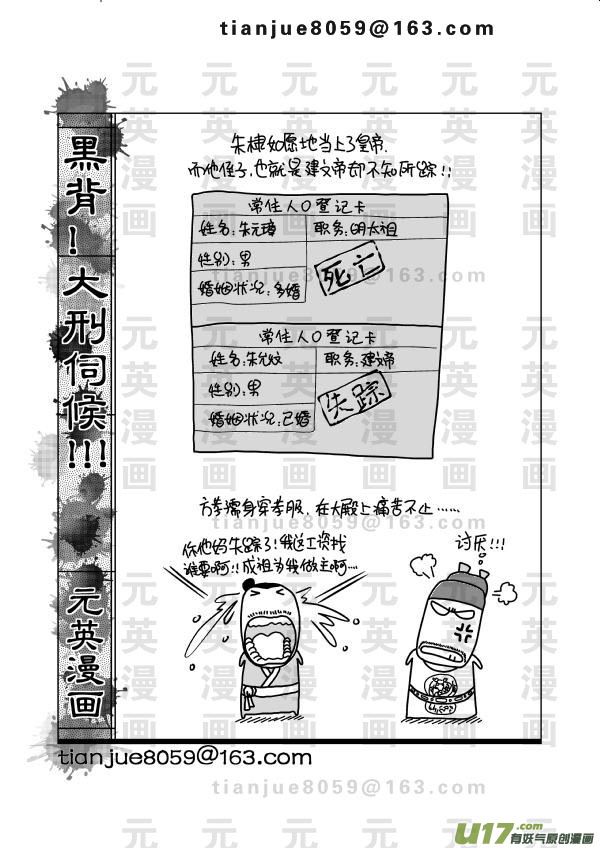 tianjue8059@163.com
黑背！大刑伺候!!!
元英漫画
朱棣如愿地当上了皇帝.
而他侄子,也就是建文帝却不知所踪!!
常住人口登记卡
姓名:朱元璋 职务:明太祖
性别:男
婚姻状况:多婚
死亡
常住人口登记卡
姓名:朱允炆 职务:建文帝
性别:男
婚姻状况:已婚
失踪
方孝孺身穿孝服.在大殿上痛苦不止……
你他妈失踪了!我这工资找
谁要啊!!成祖为我做主啊…
讨厌!!!
tianjue8059@163.com
元英漫画
tianjue8059@163.com
U17.com
有妖气原创漫画